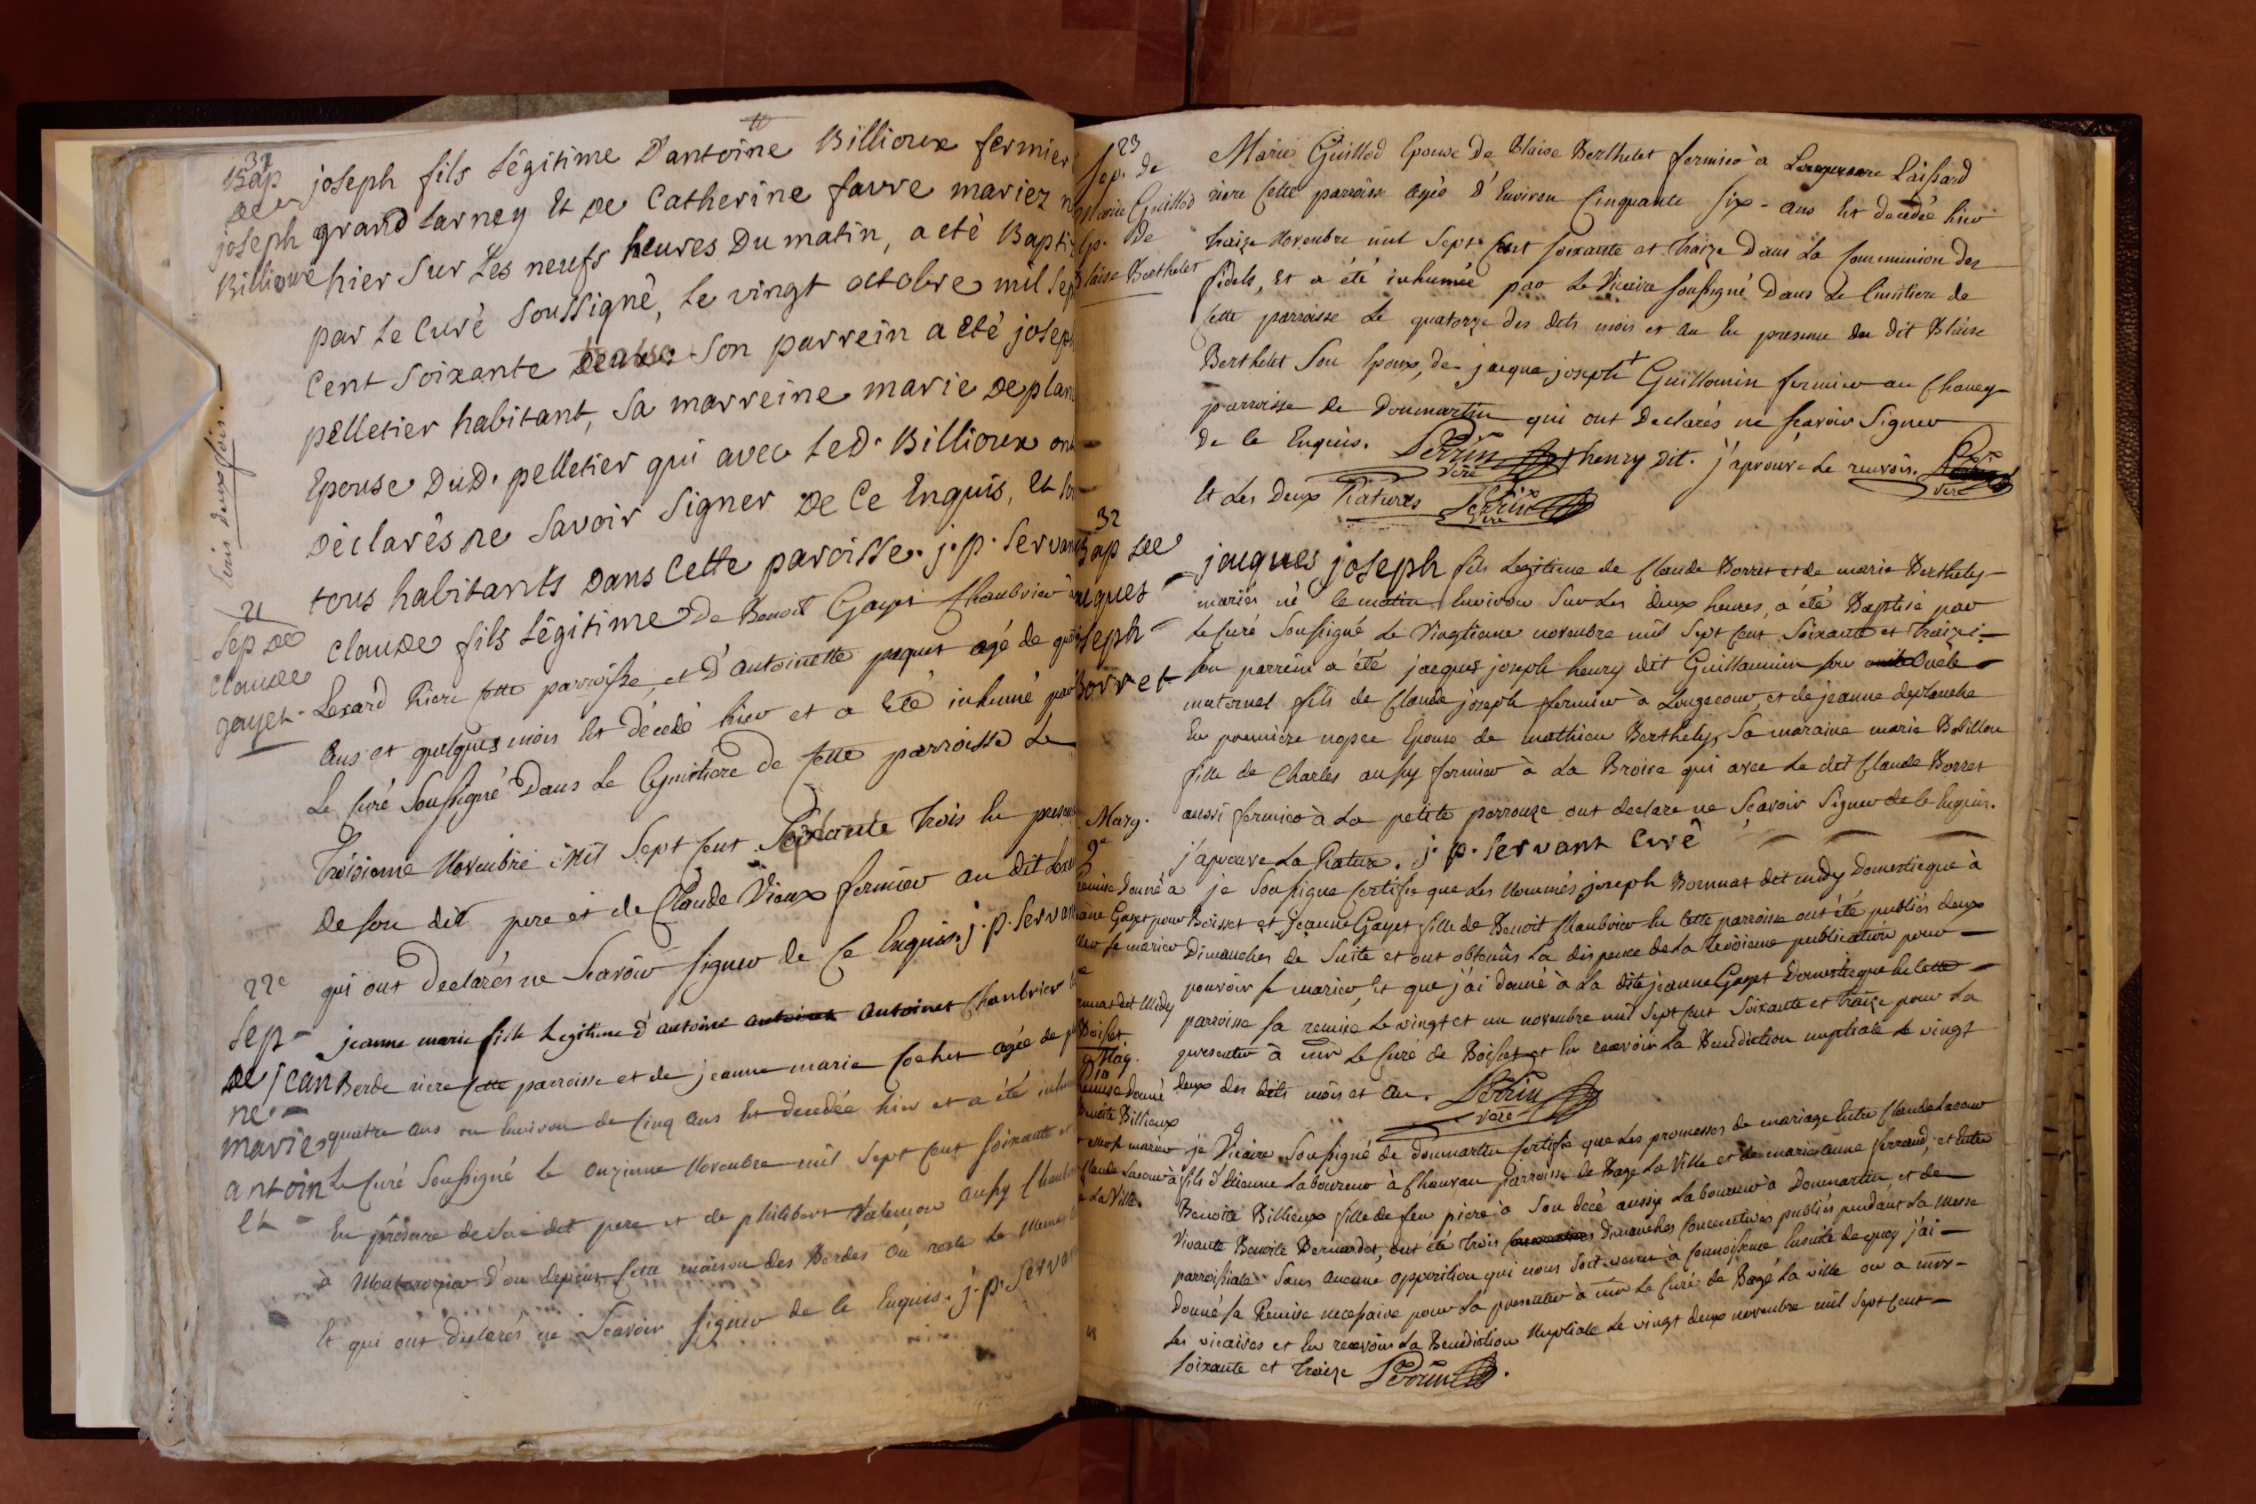 31
Bap
de
joseph
Billioux
joseph fils Légitime D'antoine Billioux fermier
grand Larney Et de Catherine favre mariez
hier sur Les neufs heures Du matin, a eté Bapti
par Le Curé Soussigné, Le vingt octobre mil Sep
Cent Soixante Son parrein a eté joseph
pelletier habitant, Sa marreine marie Deplan
Epouse DuD. pelletier qui avec Led. Billioux ont
Déclarés ne Savoir Signer De Ce Enquis, Et
tous habitants Dans Cette paroisse. j. p. Servan
deux fois.
21
Sep de
Claude
gayet
Claude fils Légitime de Benoit Gayet Chanbrier
Lexard Riere cette parroisse, et d'antoinette paquet agé de
Ans et quelques mois Est décedé hier et a Eté inhumé par
Le Curé Soussigné Dans Le Cymistiere de cette parroisse Le
Troisieme Novembre Mil Sept Cent Soixante Trois En presen
de son dit pere et de Claude Vieux fermier au dit
qui ont declarés ne Scavoir signer de Ce Enquis. j. p. Servan
22e
Sep
de jean
ne
marie
antoin
et
jeanne marie fille Legitime d'antoine antoinet Antoinet Chanbrier
Borde riere cette parroisse et de jeanne marie Cochet agée de
quatre ans ou Environ de Cinq ans Est decedée hier et a été inhu
Le Curé Soussigné le onzieme Novembre mil Sept Cent soixante et
En présence de Son dit pere et de philibert aussy Chanb
à d'on depend Cette maison des Bordes où reste le
Et qui ont declarés ne Scavoir signer de Ce Enquis. j. p. Serva
23
Sep. de
Marie Guillod
Ep. de
Blaise Berthelet
Marie Guillod Epouse de Blaise Berthelet fermier à Laissard
riere Cette parroisse agée d'Environ Cinquante Six ans Est decedée hier
traize Novembre mil Sept Cent soixante et traize Dans La Communion des
fidels, Et a été inhumée par Le Vicaire soussigné Dans Le Cimitiere de
Cette parroisse Le quatorze des dits mois et an En presence du dit Blaise
Berthelet Son Epoux, de jacque joseph + Guillomin fermier au Chaney
parroisse de Donmartin qui ont Declarés ne scavoir Signer
de ce Enquis. Perrin Vire + henry Dit. j'aprouve Le renvois. Perrin Vire
Et Les Deux Ratures Perrin Vire
32
Bap de
jacques
joseph
Borret
jacques joseph fils Legitime de Claude Borret et de marie Berthely
mariés né le matin Environ Sur Les deux heures, a été Baptisé par
Le Curé Soussigné Le Vingtieme novembre mil Sept Cent Soixante et traize
son parrein a été jacques joseph henry dit Guillaumin son oncle
maternel fils de Claude joseph fermier à Longecour, et de jeanne deplanche
En premiere nopce Epouse de mathieu Berthely, Sa maraine marie Bobillon
fille de Charles aussy fermier à La Broise qui avec Le dit Claude Borret
aussi fermier à La petite parrouze ont declare ne Scavoir Signer de Ce Enquis.
j'aprouve La Rature. j. p. Servant Curé
Marg.
9e
remise Donné a
Gayet pour
se marier
Boisset
je Soussigne Certifie que Les Nommés joseph Bornuat dit midy Domestique à
Boisset et jeanne Gayet fille de Benoit Chanbrier En Cette parroisse ont été publiés deux
Dimanches de Suite et ont obtenûs La dispence de La troisieme publication pour
pouvoir se marier, Et que j'ai donné à La dite jeanne Gayet Domestique En Cette
parroisse sa remise Le vingt et un novembre mil Sept Cent Soixante et traize pour La
presenter à mr Le Curé de Boisset et En recevoir La Benediction nuptiale Le vingt
deux des dits mois et an. Perrin Vire
Mag.
10
remise Donné
Benoite Billioux
marier
Claude Lacour à
La Ville.
je Vicaire Soussigné de donmartin Certifie que Les promesses de mariage Entre Claude Lacour
fils d'Etienne Laboureur à Chanvau parroisse de Bage La Ville et de marie anne ferrand, et Entre
Benoite Billioux fille de feu piere à Son decé aussy Laboureur à Donmartin, et de
Vivante Benoite Bernardet, ont été trois dimanches Consecutives publiés pendant La messe
parroissiale Sans Aucune opposition qui nous Soit venu à Connoissance Ensuite de quoy j'ai
donné sa Remise necessaire pour La presenter à mr Le Curé de Bagé La ville ou a mrs
Les vicaires et En recevoir La Benediction Nuptiale Le vingt deux novembre mil Sept Cent
Soixante et traize Perrin